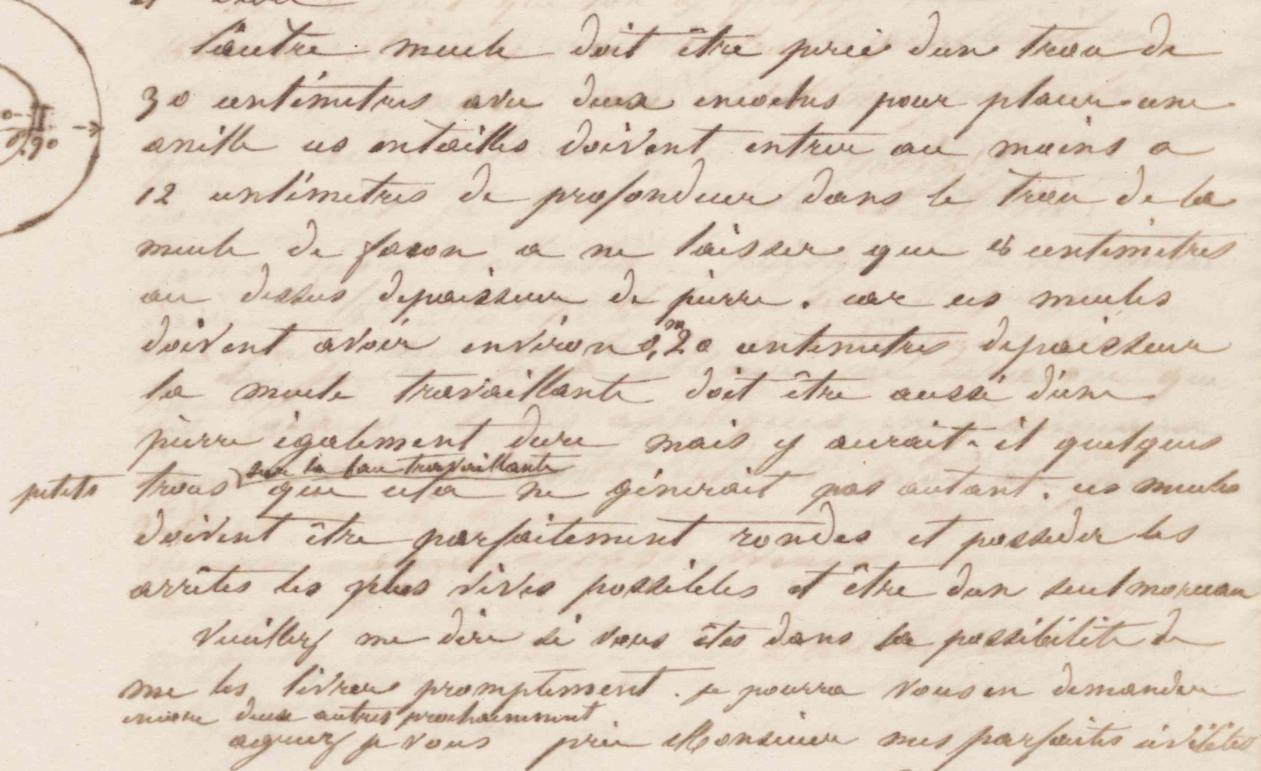 L'autre meule doit être percé d'un trou de
30 centimetres avec deux encoches pour placer une
anille ces entailles doivent entrer au moins a
12 centimetres de profondeur dans le trou de la
meule de facon a ne laisser que 8 centimetres
au dessus depaisseur de pierre. car ces meules
doivent avoir environ 0,m20 centimetres depaisseur
la meule travaillante doit être aussi d'une
pierre également dure mais y aurait-il quelques
petits trous sur la face travaillante que cela ne génerait pas autant. ces meules
doivent être parfaitement rondes et posseder les
arrêtes les plus vives possibles et être dun seul morceau
Veuillez me dire si vous êtes dans la possibilité de
me les livrer promptement. je pourra vous en demander
encore deux autres prochainement
agreez je vous prie Monsieur mes parfaites civilités
0.90